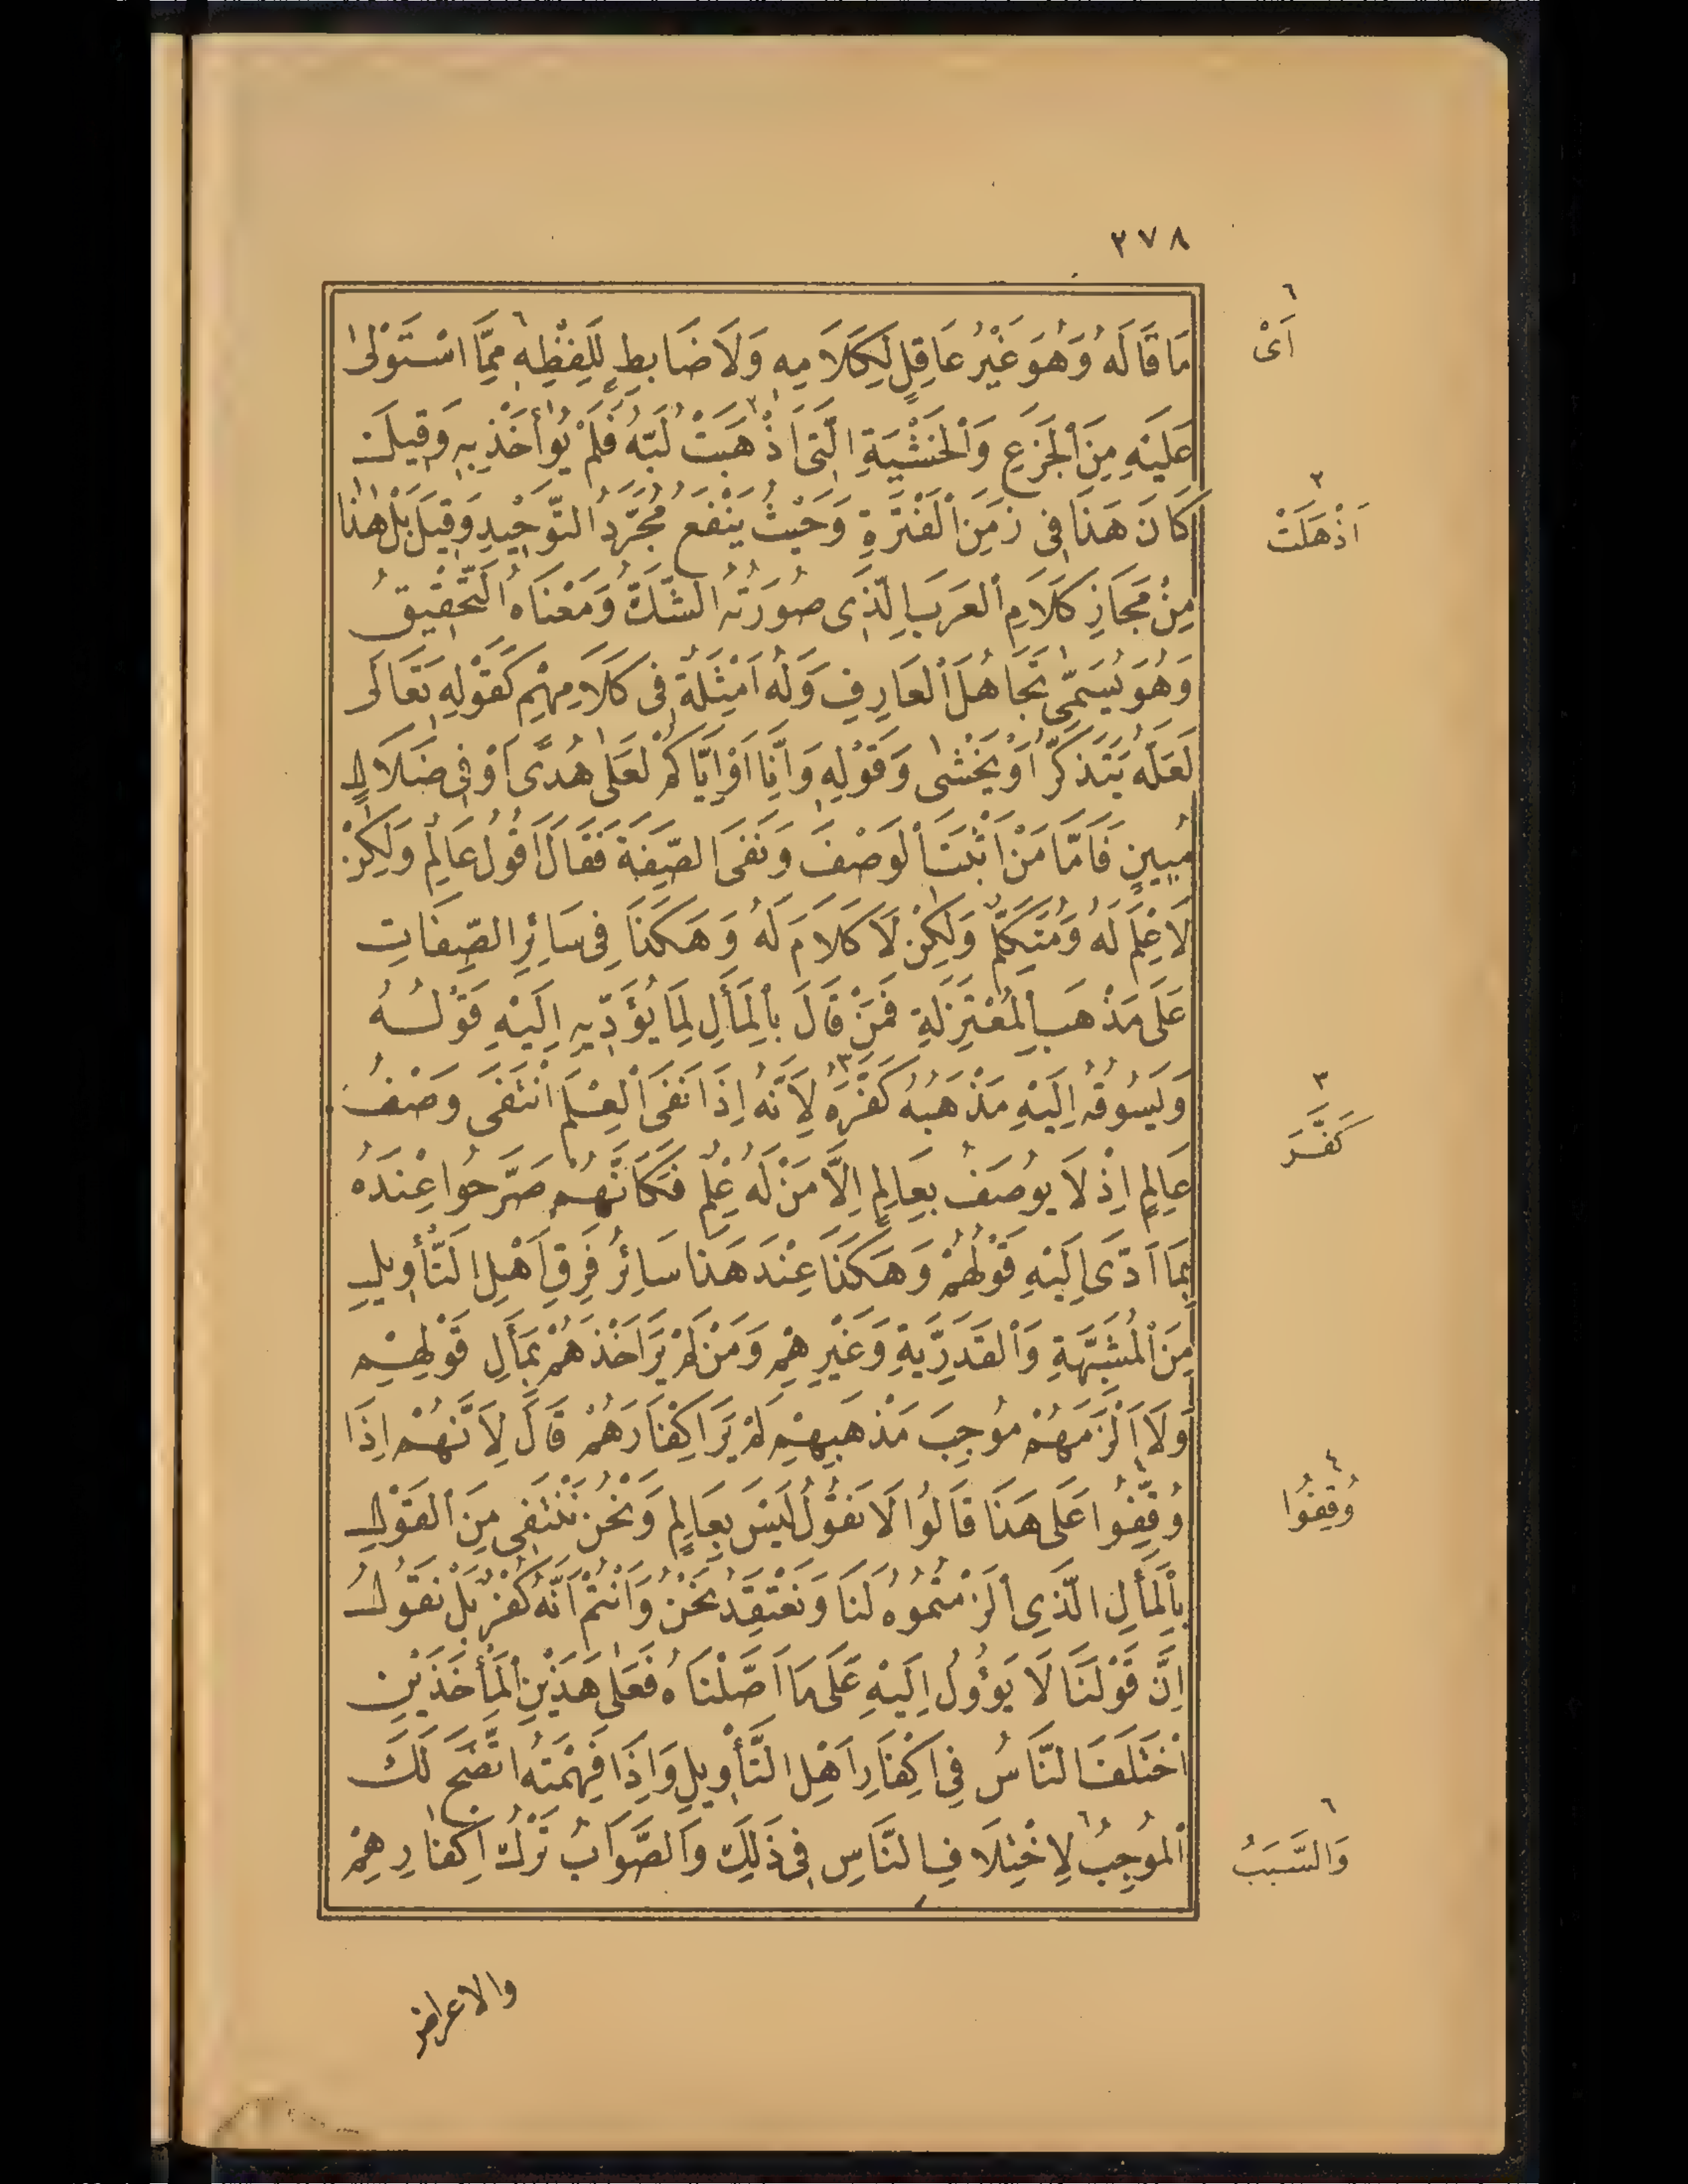 ٣٧٨
مَا قَالَهُ وَهُوَ غَيْرُ عَاقِلٍ لِكَلَامِهِ وَلَا ضَابِطٍ لِلَفْظِهِ ٦ مِمَّا اسْتَوْلىٰ
عَلَيْهِ مِنَ الْجَزَعِ وَالْخَشْيَةِ الَّتِى اَذْهَبَتْ ٢ لُبَّهُ فَلَمْ يُؤٰاخَذْ بِهِ وَقِيلَ
كَانَ هَذَا فِى زَمَنِ الْفَتْرَةِ وَحَيْثُ يَنْفَعُ مُجَرَّدُ التَّوْحِيدِ وَقِيلَ بَلْ هٰذَا
مِنْ مَجَازِ كَلَامِ الْعَرَبِ الَّذِى صُورَتُهُ الشَّكُّ وَمَعْنَاهُ التَّحْقِيقُ
وَهُوَ يُسَمّٰى تَجَاهُلَ الْعَارِفِ وَلَهُ اَمْثِلَةٌ فِى كَلَامِهِمْ كَقَوْلِهِ تَعَالَى
لَعَلَّهُ يَتَذَكَّرُ اَوْ يَخْشٰى وَقَوْلِهِ وَاِنَّا اَوْ اِيَّاكُمْ لَعَلٰى هُدًى اَوْ فِى ضَلَالٍ
مُبِينٍ فَاَمَّا مَنْ اَثْبَتَ الْوَصْفَ وَنَفَى الصِّفَةَ فَقَالَ اَقُولُ عَالِمٌ وَلٰكِنْ
لَا عِلْمَ لَهُ وَمُتَكَلِّمٌ وَلٰكِنْ لَا كَلَامَ لَهُ وَهَكَذَا فِى سَائِرِ الصِّفَاتِ
عَلَى مَذْهَبِ الْمُعْتَزِلَةِ فَمَنْ قَالَ بِالْمَأَلِ لِمَا يُؤَدِّيهِ اِلَيْهِ قَوْلُهُ
وَيَسُوقُهُ اِلَيْهِ مَذْهَبُهُ كَفَّرَهُ ٣ لِاَنَّهُ اِذَا نَفَى الْعِلْمَ انْتَفَى وَصْفُ
عَالِمٍ اِذْ لَا يُوصَفُ بِعَالِمٍ اِلَّا مَنْ لَهُ عِلْمٌ فَكَاَنَّهُمْ صَرَّحُوا عِنْدَهُ
بِمَا اَدَّى اِلَيْهِ قَوْلُهُمْ وَهَكَذَا عِنْدَ هَذَا سَائِرُ فِرَقِ اَهْلِ التَّأْوِيلِ
مِنَ الْمُشَبِّهَةِ وَالْقَدَرِيَّةِ وَغَيْرِهِمْ وَمَنْ لَمْ يَرَ اَخْذَهُمْ بِمَأَلِ قَوْلِهِمْ
وَلَا اَلْزَمَهُمْ مُوجِبَ مَذْهَبِهِمْ لَمْ يَرَ اِكْفَارَهُمْ قَالَ لِاَنَّهُمْ اِذَا
وُقِّفُوا ٤ عَلَى هَذَا قَالُوا لَا نَقُولُ لَيْسَ بِعَالِمٍ وَنَحْنُ نَنْتَفِى مِنَ الْقَوْلِ
بِالْمَأَلِ الَّذِى اَلْزَمْتُمُوهُ لَنَا وَنَعْتَقِدُ نَحْنُ وَاَنْتُمْ اَنَّهُ كُفْرٌ بَلْ نَقُولُ
اِنَّ قَوْلَنَا لَا يَؤُولُ اِلَيْهِ عَلَى مَا اَصَّلْنَاهُ فَعَلٰى هَذَيْنِ الْمَأْخَذَيْنِ
اخْتَلَفَ النَّاسُ فِى اِكْفَارِ اَهْلِ التَّأْوِيلِ وَاِذَا فَهِمْتَهُ اتَّضَحَ لَكَ
الْمُوجِبُ ٦ لِاِخْتِلَافِ النَّاسِ فِى ذَلِكَ وَالصَّوَابُ تَرْكُ اِكْفَارِهِمْ
والاعراض
٦
اَىْ
٢
اَذْهَلَتْ
٣
كَفَّرَ
٤
وُقِفُوا
٦
وَالسَّبَبُ